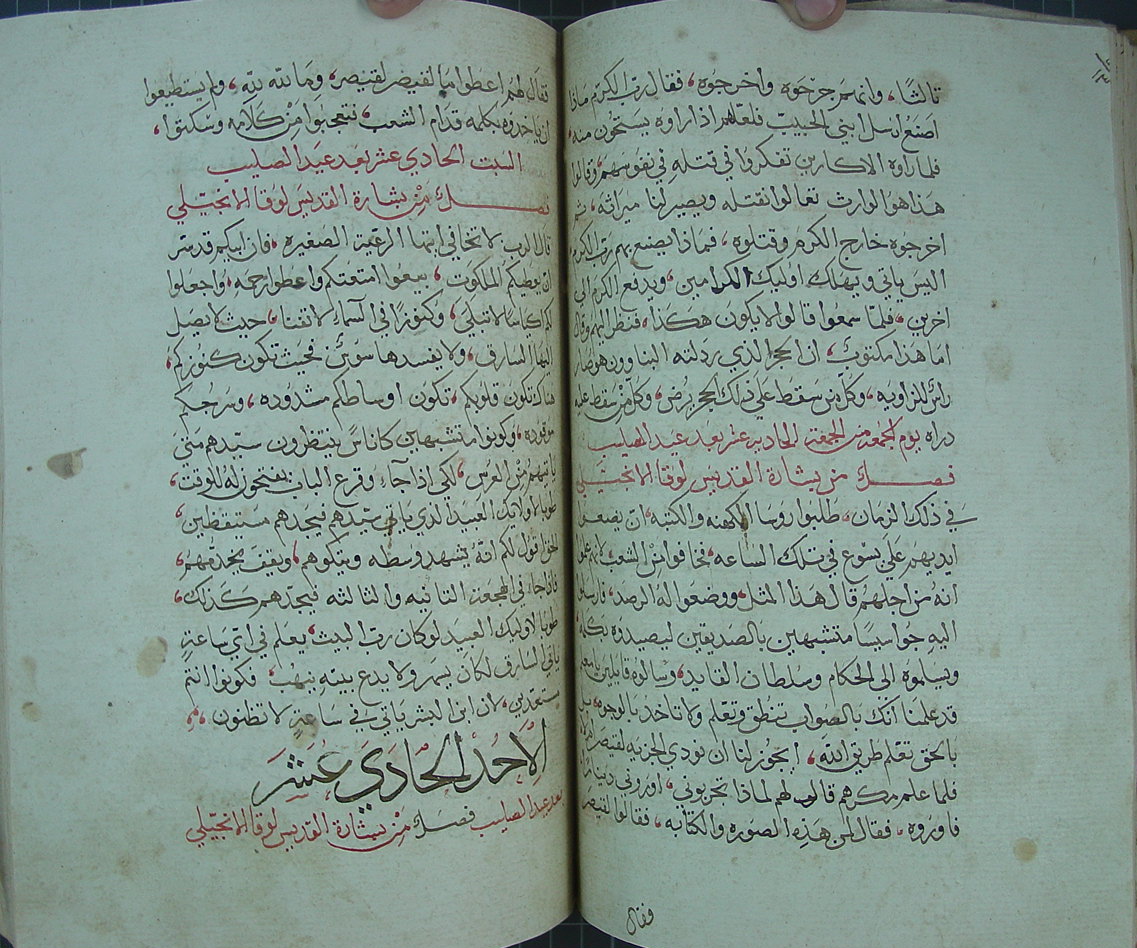 ثالثًا، وانهم جرحوه واخرجوه، فقال رب الكرم ماذا
اصنع ارسل ابني الحبيب فلعلهم اذا راوه يستحون منه
فلما راوه الاكارين تفكروا في قتله في نفوسهم وقالوا
هذا هو الوارث تعالوا نقتله ويصير لنا ميراثه، ثم
اخرجوه خارج الكرم وقتلوه، فماذا يصنع بهم رب الكرم
اليس ياتي ويهلك اوليك الكرامين، ويدفع الكرم الي
اخرين، فلما سمعوا قالوا لا يكون هكذا، فنظر اليهم وقال
اما هذا مكتوبٌ، ان الحجر الذي رذلته البناوون هو صار
راس للزاويه، وكل من سقط علي ذلك الحجر يرض، وكل من سقط عليه
دراه يوم الجمعه من الجمعة الحاديه عشر بعد عيد الصليب
فصل من بشارة القديس لوقا الانجيلي
في ذلك الزمان، طلبوا روسا الكهنه والكتبه، ان يضعوا
ايديهم علي يسوع في تلك الساعه، فخافوا من الشعب لانهم علموا
انه من اجلهم قال هذا المثل، ووضعوا له الرصد، فارسلوا
اليه جواسيسًا متشبهين بالصديقين ليصيدوه بكلمه
ويسلموه الى الحكام وسلطان القايد، وسالوه قايلين يا معلم
قد علمنا انك بالصواب تنطق وتعلم ولا تاخذ بالوجوه، بل
بالحق تعلم طريق الله، ايجوز لنا ان نودي الجزيه لقيصر ام لا
فلما علم مكرهم قال لهم لماذا تجربوني، اوروني دينارًا
فاوروه، فقال لمن هذه الصوره والكتابه، فقالوا لقيصر
فقال
فقال لهم اعطوا ما لقيصر لقيصر، وما لله لله، ولم يستطيعوا
ان ياخذوه بكلمه قدام الشعب، فتعجبوا من كلامه وسكتوا،
السبت الحادي عشر بعد عيد الصليب
فصل من بشارة القديس لوقا الانجيلي
قال الرب لا تخافي ايتها الرعية الصغيره، فان ابيكم قد سر
ان يعطيكم الملكوت، بيعوا امتعتكم واعطوا رحمه، واجعلوا
لكم اكياسًا لا تبلي، وكنوزًا في السماء لا تفنا، حيث لا يصل
اليها السارق، ولا يفسدها سوس، فحيث تكون كنوزكم،
هناك تكون قلوبكم، تكون اوساطكم مشدوده، وسرجكم
موقوده، وكونوا متشبهين كاناس ينتظرون سيدهم متي
ياتيهم من العرس، لكي اذا جاء وقرع الباب يفتحون له للوقت،
طوبا لاوليك العبيد الذي ياتي سيدهم فيجدهم مستيقظين،
الحق اقول لكم انه يشهد وسطه ويتكوهم، ويقف يخدمهم،
فاذا جاء في الهجعة الثانيه والثالثه فيجدهم كذلك،
طوبا لاوليك العبيد لو كان رب البيت، يعلم في اي ساعةٍ
ياتي السارق لكان يسهر ولا يدع بيته ينهب، فكونوا انتم
مستعدين، لان ابن البشر ياتي في ساعةٍ لا تظنون
الاحد الحادي عشر
بعد عيد الصليب فصل من بشارة القديس لوقا الانجيلي